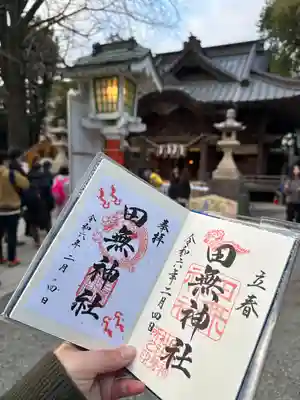 立春
奉拝
田無神社
令和六年二月四日
田無神社
令和六年二月四日